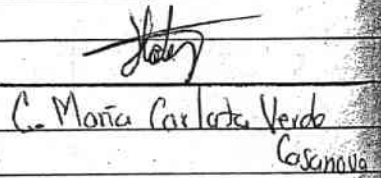 C. María Carlota Verdo
Casanova